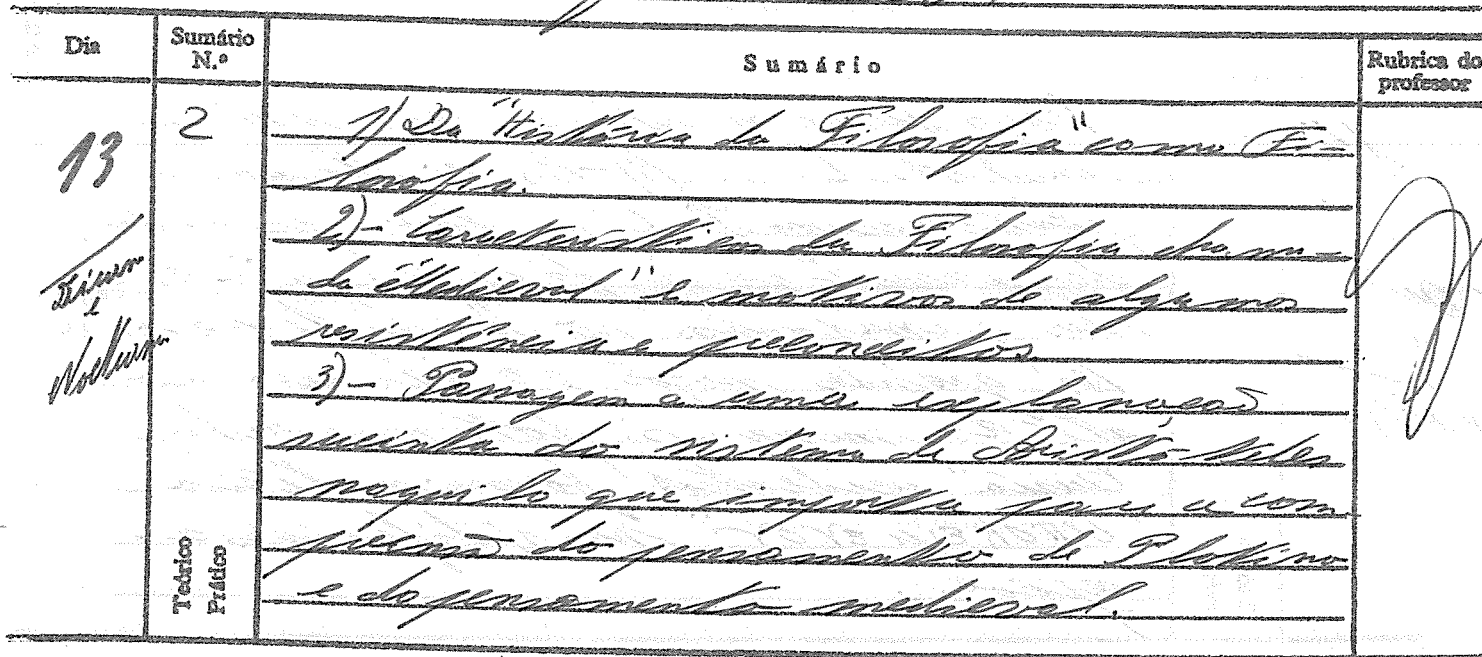 Dia
Sumário N.º
Sumário
Rubrica do professor
13
2
Diurno
e
Nocturno
Teórico
Prático
1) Da "História da Filosofia" como Fi-
losofia.
2) - Características da Filosofia chama-
da "Medieval" e motivos de algumas
resistências e preconceitos
3) - Passagem a uma explanação
sucinta do sistema de Aristóteles
naquilo que importa para a com-
preensão do pensamento de Plotino
e do pensamento medieval.